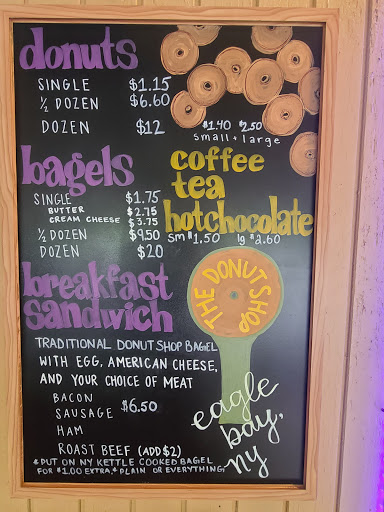 donuts
SINGLE $1.15
½ DOZEN $6.60
DOZEN $12
$1.40 $2.50
small + large
coffee
tea
hotchocolate
sm $1.50 lg $2.60
bagels
SINGLE $1.75
BUTTER $2.75
CREAM CHEESE $3.75
½ DOZEN $9.50
DOZEN $20
breakfast
sandwich
THE DONUT SHOP
TRADITIONAL DONUT SHOP BAGEL
WITH EGG, AMERICAN CHEESE,
AND YOUR CHOICE OF MEAT
BACON
SAUSAGE $6.50
HAM
ROAST BEEF (ADD $2)
*PUT ON NY KETTLE COOKED BAGEL
FOR $1.00 EXTRA,* PLAIN OR EVERYTHING
eagle
bay,
ny